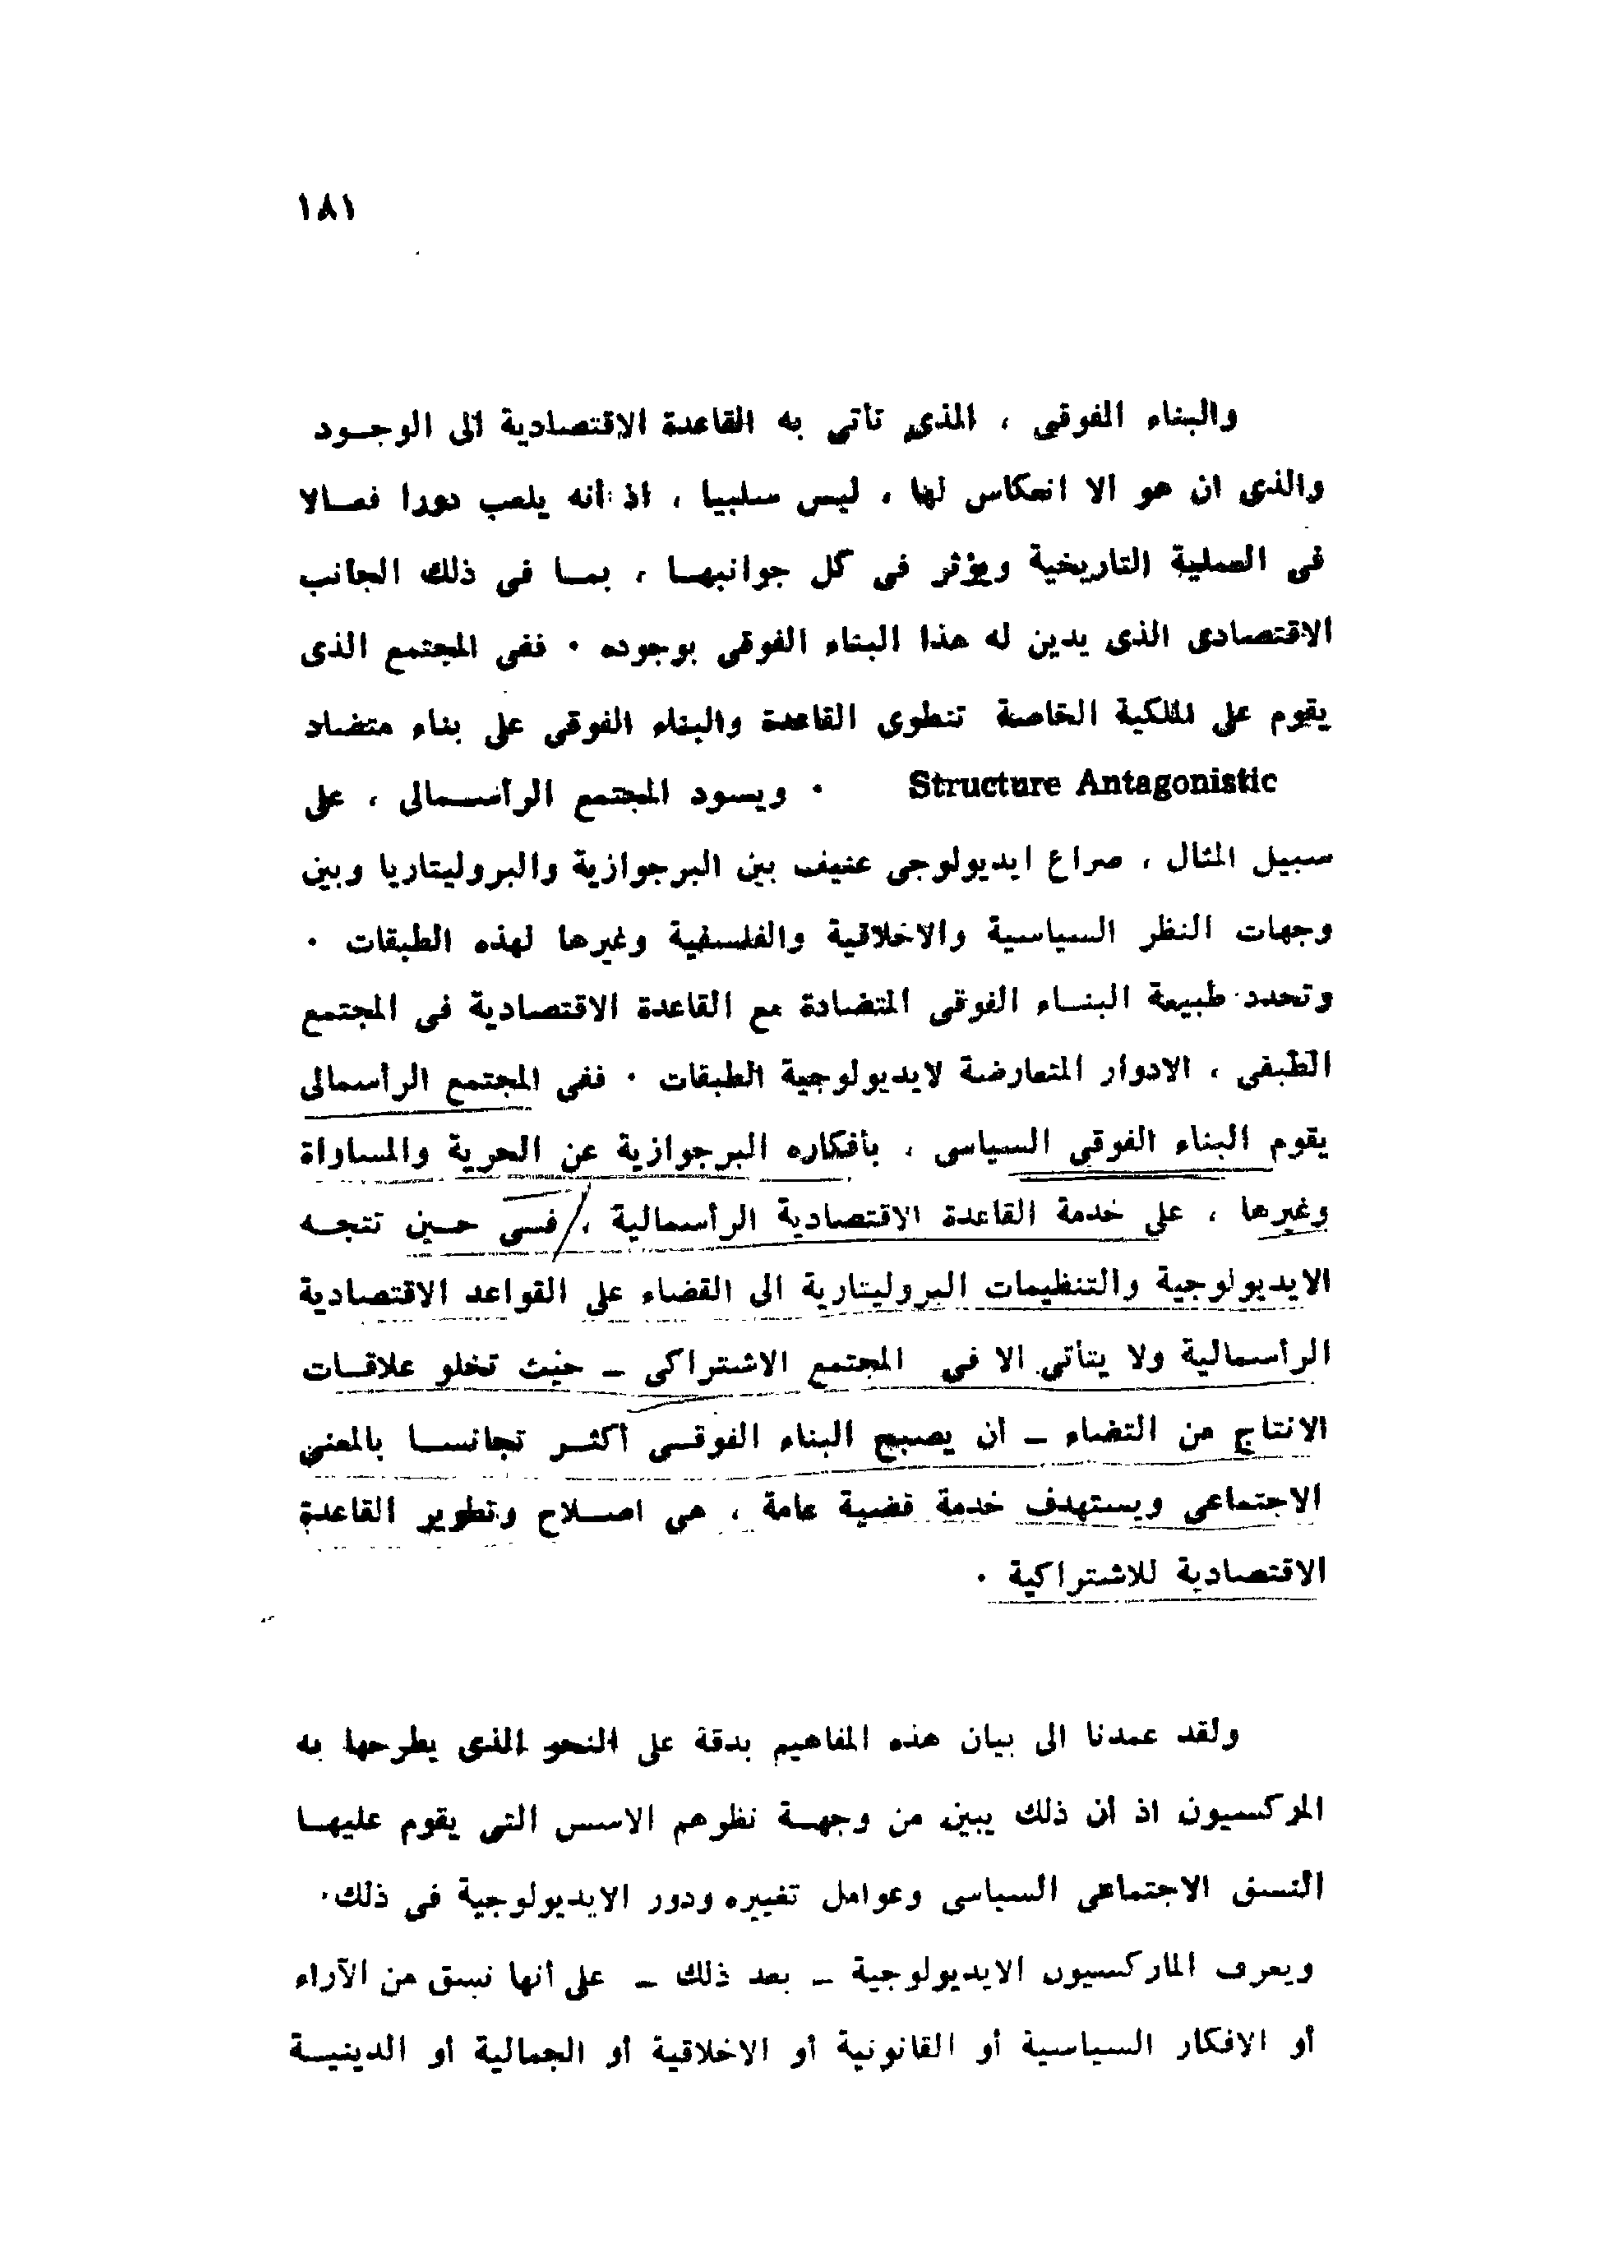 ١٨١
والبناء الفوقى ، الذى تأتى به القاعدة الاقتصادية الى الوجـود
والذى ان هو الا انعكاس لها ، ليس سلبيا ، اذ أنه يلعب دورا فعـالا
فى العملية التاريخية ويؤثر فى كل جوانبهـا ، بمـا فى ذلك الجانب
الاقتصادى الذى يدين له هذا البناء الفوقى بوجوده ٠ ففى المجتمع الذى
يقوم على الملكية الخاصة تنطوى القاعدة والبناء الفوقى على بناء متضاد
Structure Antagonistic ٠ ويسود المجتمع الرأسـمالى ، على
سبيل المثال ، صراع ايديولوجى عنيف بين البرجوازية والبروليتاريا وبين
وجهات النظر السياسية والاخلاقية والفلسفية وغيرها لهذه الطبقات ٠
وتحدد طبيعة البنـاء الفوقى المتضادة مع القاعدة الاقتصادية فى المجتمع
الطبقى ، الادوار المتعارضة لايديولوجية الطبقات ٠ ففى المجتمع الرأسمالى
يقوم البناء الفوقى السياسى ، بأفكاره البرجوازية عن الحرية والمساواة
وغيرها ، على خدمة القاعدة الاقتصادية الرأسمالية ، فـى حـين تتجـه
الايديولوجية والتنظيمات البروليتارية الى القضاء على القواعد الاقتصادية
الرأسمالية ولا يتأتى الا فى المجتمع الاشتراكى ـ حيث تخلو علاقـات
الانتاج من التضاد ـ أن يصبح البناء الفوقـى أكثـر تجانسـا بالمعنى
الاجتماعى ويستهدف خدمة قضية عامة ، هى اصـلاح وتطوير القاعدة
الاقتصادية للاشتراكية ٠
ولقد عمدنا الى بيان هذه المفاهيم بدقة على النحو الذى يطرحها به
المركسيون اذ أن ذلك يبين من وجهـة نظرهم الاسس التى يقوم عليهـا
النسق الاجتماعى السياسى وعوامل تغييره ودور الايديولوجية فى ذلك٠
ويعرف الماركسيون الايديولوجية ـ بعد ذلك ـ على أنها نسق من الآراء
أو الافكار السياسية أو القانونية أو الاخلاقية أو الجمالية أو الدينيـة